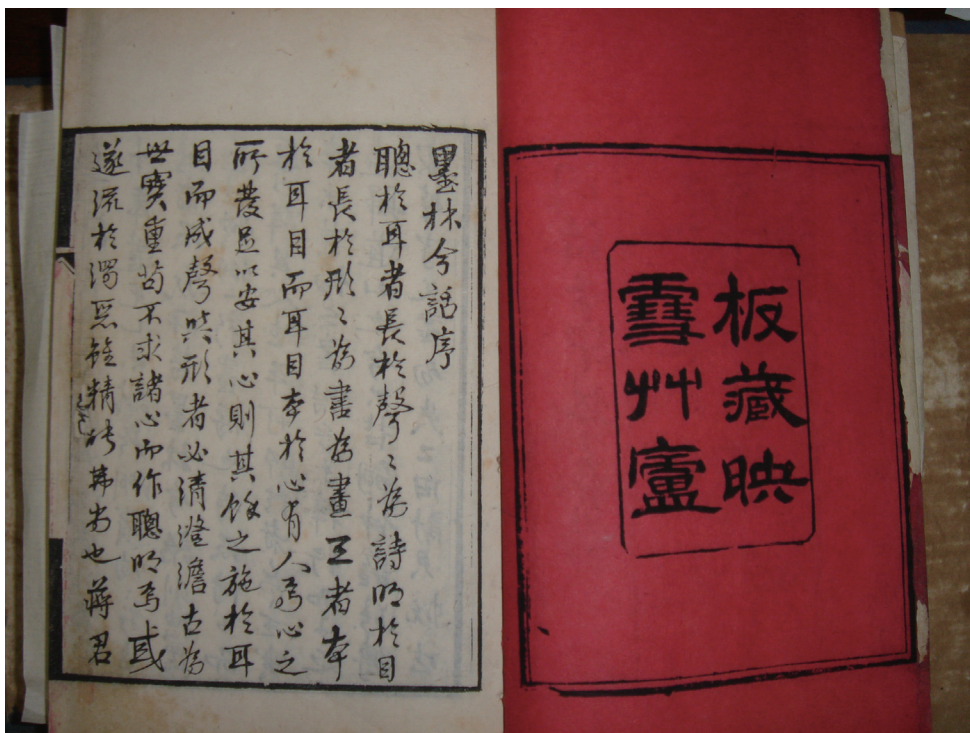 板藏映
雪艸廬
墨林今話序
聰於耳者長於聲〻為詩明於目
者長於形〻為書為畫三者本
於耳目而耳目本於心有人焉心之
所發足以安其心則其餘之施於耳
目而成聲與形者必清澄澹古為
世寶重苟不求諸心而作聰明焉或
遂流於濁惡雖精能弗尚也蔣君